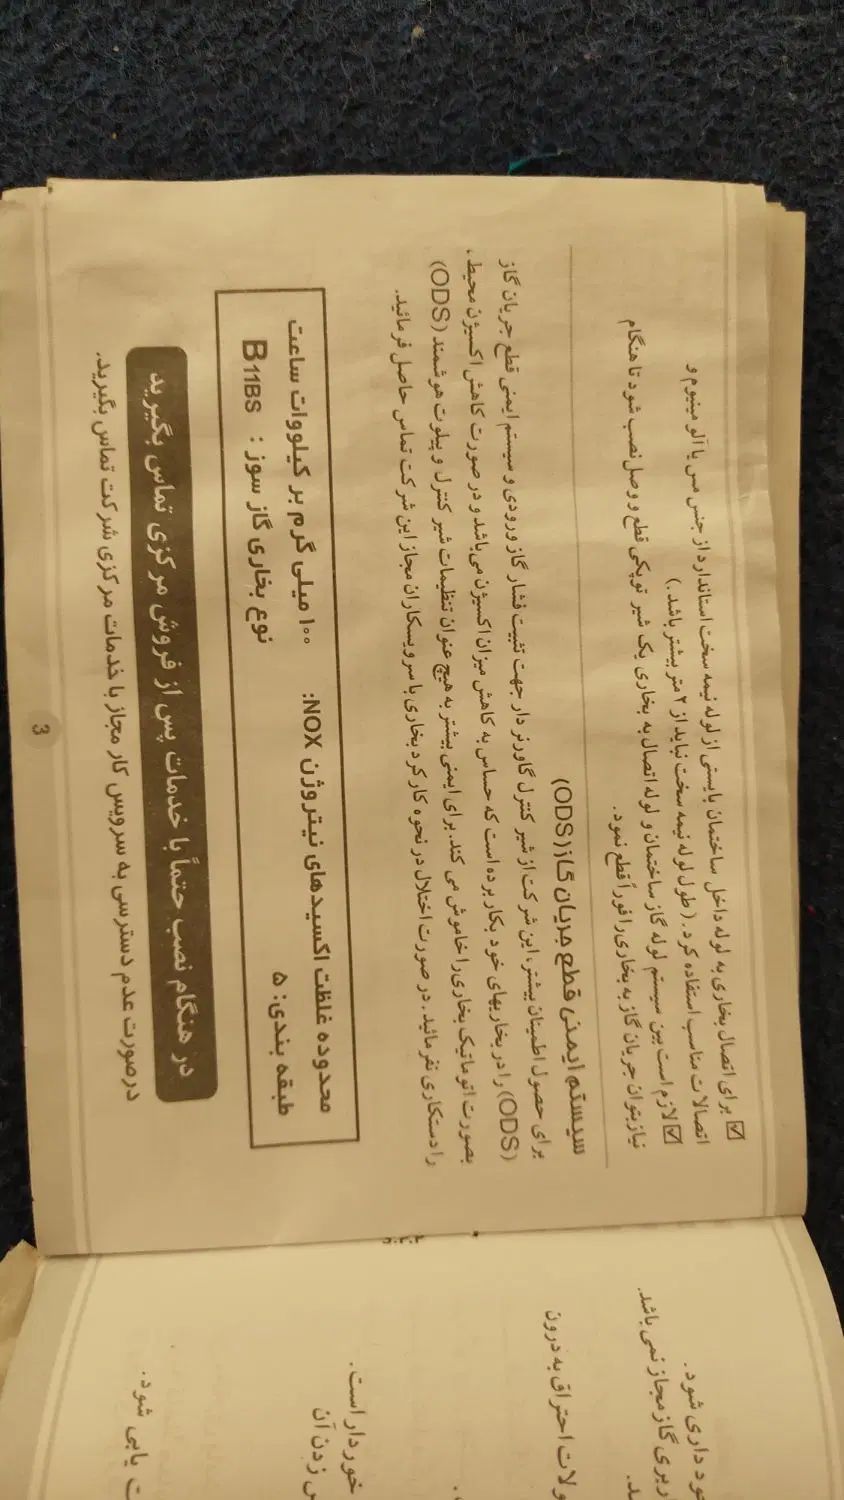 برای اتصال بخاری به لوله داخل ساختمان بایستی از لوله نیمه سخت استاندارد از جنس مس یا آلومینیوم و
اتصالات مناسب استفاده کرد. (طول لوله نیمه سخت نباید از ۲ متر بیشتر باشد.)
لازم است بین سیستم لوله گاز ساختمان و لوله اتصال به بخاری یک شیر توپکی قطع و وصل نصب شود تا هنگام
نیاز بتوان جریان گاز به بخاری را فوراً قطع نمود.
سیستم ایمنی قطع جریان گاز (ODS)
برای حصول اطمینان بیشتر، این شرکت از شیر کنترل گاورنر دار جهت تثبیت فشار گاز ورودی و سیستم ایمنی قطع جریان گاز
(ODS) را در بخاریهای خود بکار برده است که حساس به کاهش میزان اکسیژن می‌باشد و در صورت کاهش اکسیژن محیط ،
بصورت اتوماتیک بخاری را خاموش می کند. برای ایمنی بیشتر به هیچ عنوان تنظیمات شیر کنترل و پیلوت هوشمند (ODS)
را دستکاری نفرمائید . در صورت اختلال در نحوه کارکرد بخاری با سرویسکاران مجاز این شرکت تماس حاصل فرمائید.
محدوده غلظت اکسیدهای نیتروژن NOX: ۱۰۰ میلی گرم بر کیلووات ساعت
طبقه بندی: ۵ نوع بخاری گاز سوز : B11BS
در هنگام نصب حتماً با خدمات پس از فروش مرکزی تماس بگیرید
درصورت عدم دسترسی به سرویس کار مجاز با خدمات مرکزی شرکت تماس بگیرید.
3
خود داری شود.
مجاز نمی باشد.
ولات احتراق به درون
خوردار است.
زدن آن
یابی شود.